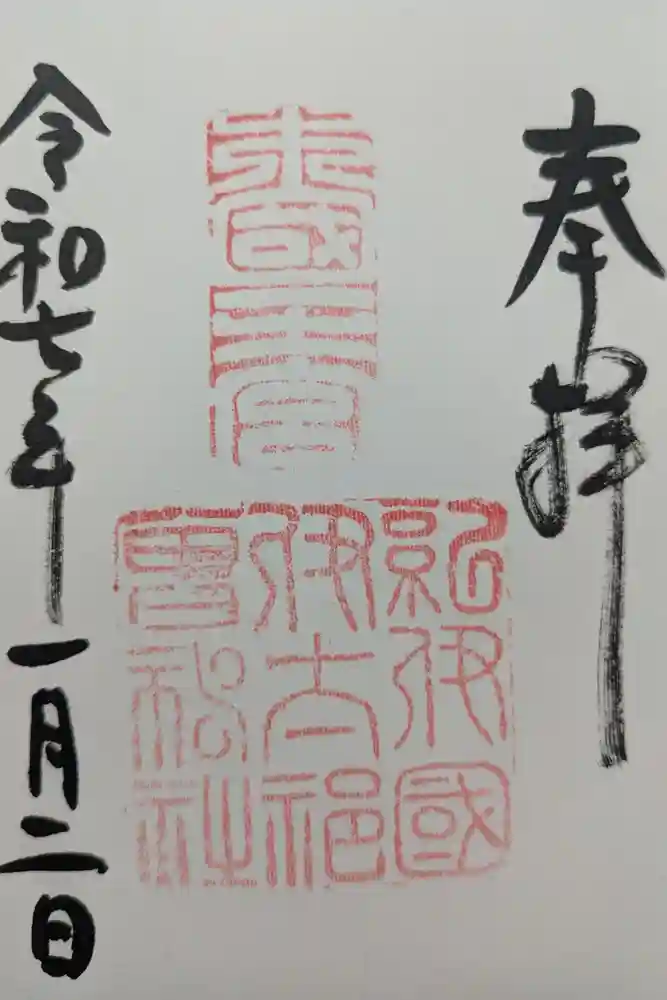 奉拝
紀伊國
伊太祁
曾神社
令和七年一月二日